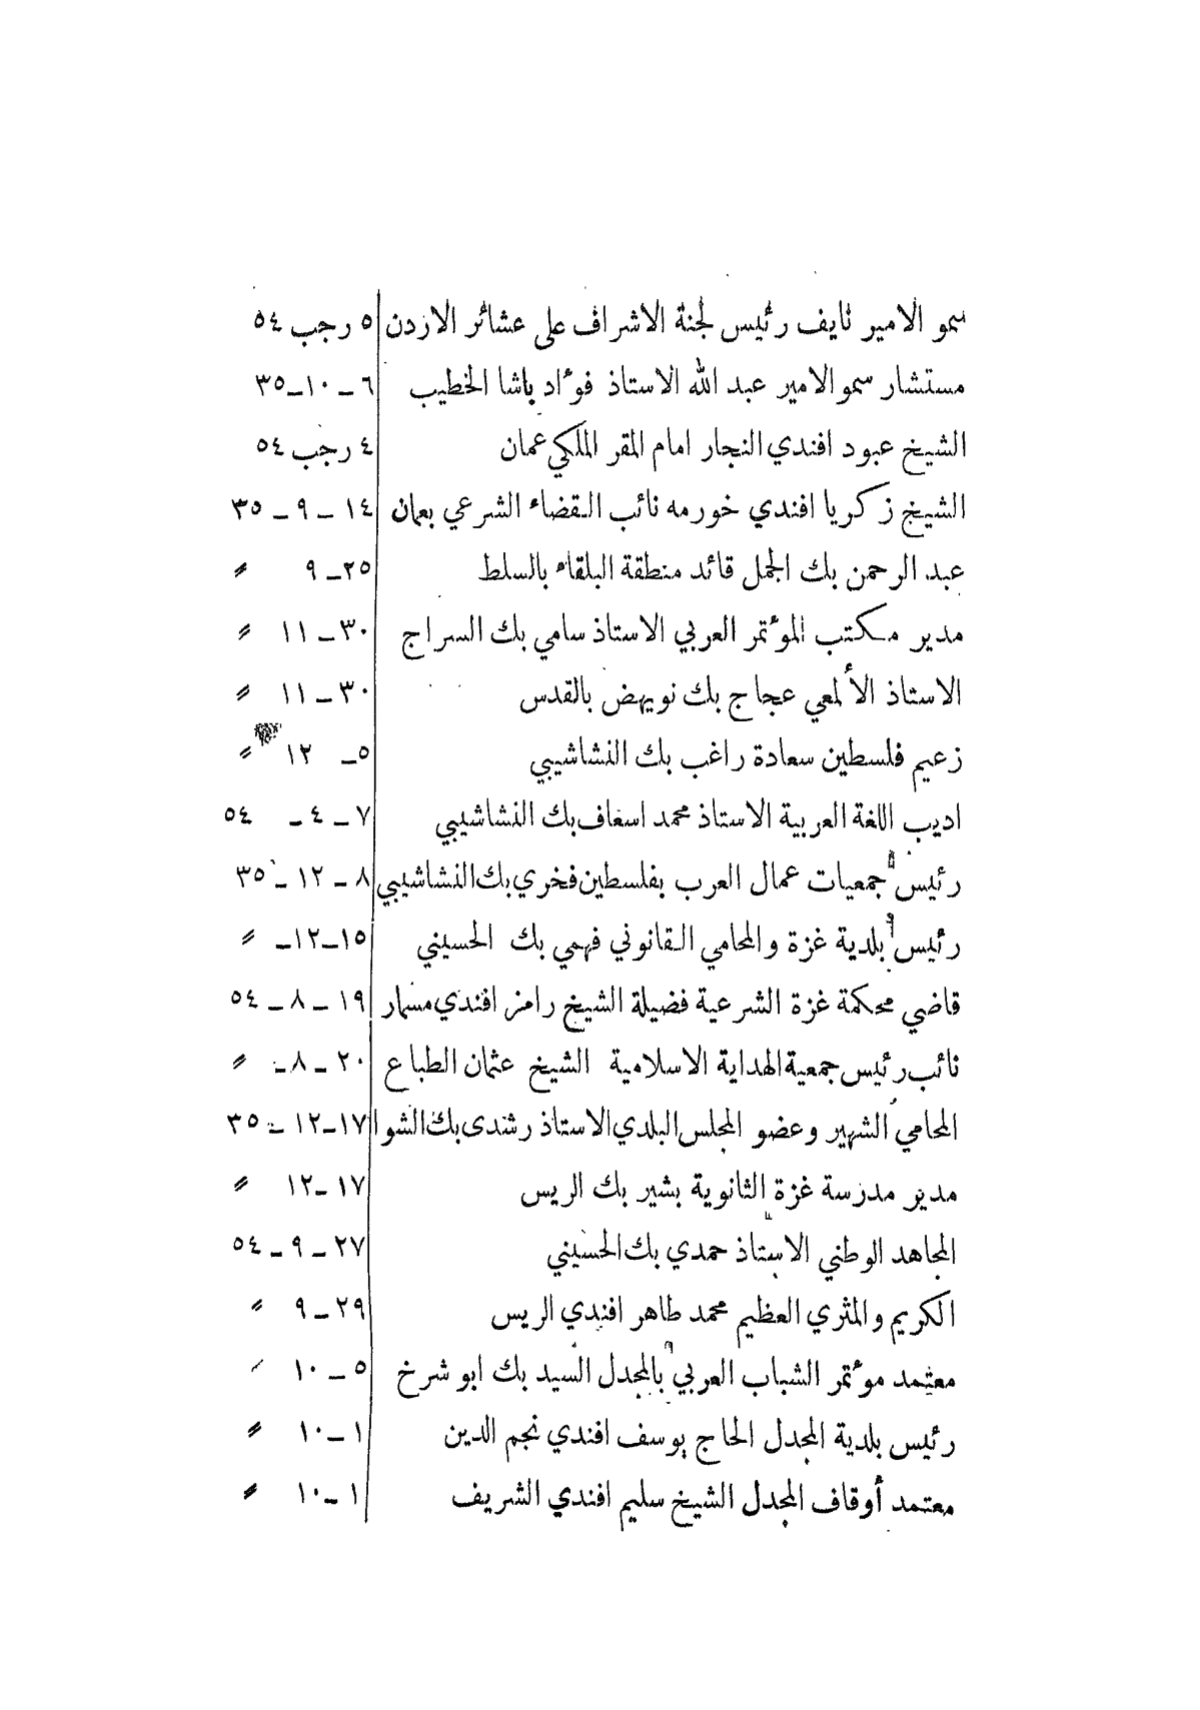 سمو الامير نايف رئيس لجنة الاشراف على عشائر الاردن ٥ رجب ٥٤
مستشار سمو الامير عبد الله الاستاذ فوءاد باشا الخطيب ٦ – ١٠–٣٥
الشيخ عبود افندي النجار امام المقر الملكي عمان ٤ رجب ٥٤
الشيخ زكريا افندي خورمه نائب القضاء الشرعي بعمان ١٤ – ٩ – ٣٥
عبد الرحمن بك الجمل قائد منطقة البلقاء بالسلط ٢٥–٩ 〃
مدير مكتب الموءتمر العربي الاستاذ سامي بك السراج ٣٠–١١ 〃
الاستاذ الألمعي عجاج بك نويهض بالقدس ٣٠–١١ 〃
زعيم فلسطين سعادة راغب بك النشاشيبي ٥– ١٢ 〃
اديب اللغة العربية الاستاذ محمد اسعاف بك النشاشيبي ٧ – ٤ – ٥٤
رئيس جمعيات عمال العرب بفلسطين فخري بك النشاشيبي ٨ – ١٢ – ٣٥
رئيس بلدية غزة والمحامي القانوني فهمي بك الحسيني ١٥–١٢– 〃
قاضي محكمة غزة الشرعية فضيلة الشيخ رامز افندي مسمار ١٩ – ٨ – ٥٤
نائب رئيس جمعية الهداية الاسلامية الشيخ عثمان الطباع ٢٠ – ٨– 〃
المحامي الشهير وعضو المجلس البلدي الاستاذ رشدى بك الشوا ١٧–١٢ – ٣٥
مدير مدرسة غزة الثانوية بشير بك الريس ١٧ –١٢ 〃
المجاهد الوطني الاستاذ حمدي بك الحسيني ٢٧ – ٩ – ٥٤
الكريم والمثري العظيم محمد طاهر افندي الريس ٢٩ – ٩ 〃
معتمد موءتمر الشباب العربي بالمجدل السيد بك ابو شرخ ٥ – ١٠ 〃
رئيس بلدية المجدل الحاج يوسف افندي نجم الدين ١ –١٠ 〃
معتمد أوقاف المجدل الشيخ سليم افندي الشريف ١ –١٠ 〃